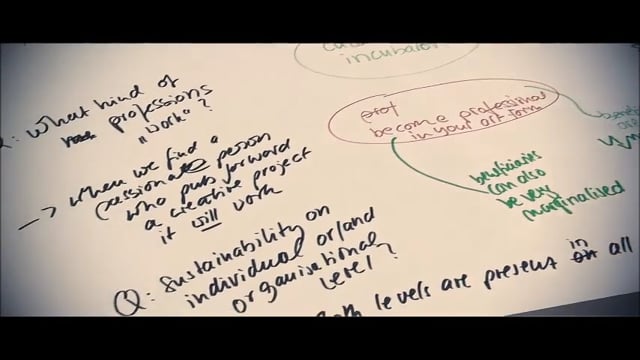 incubator
Q: What kind of
professions
"work"?
-> When we find a
passionate person
who puts forward
a creative project
it will work
Q: Sustainability on
individual or/and
organisational
level?
levels are present in all
prof
become professional
in your art form
beneficiaries
can also
be very
marginalised